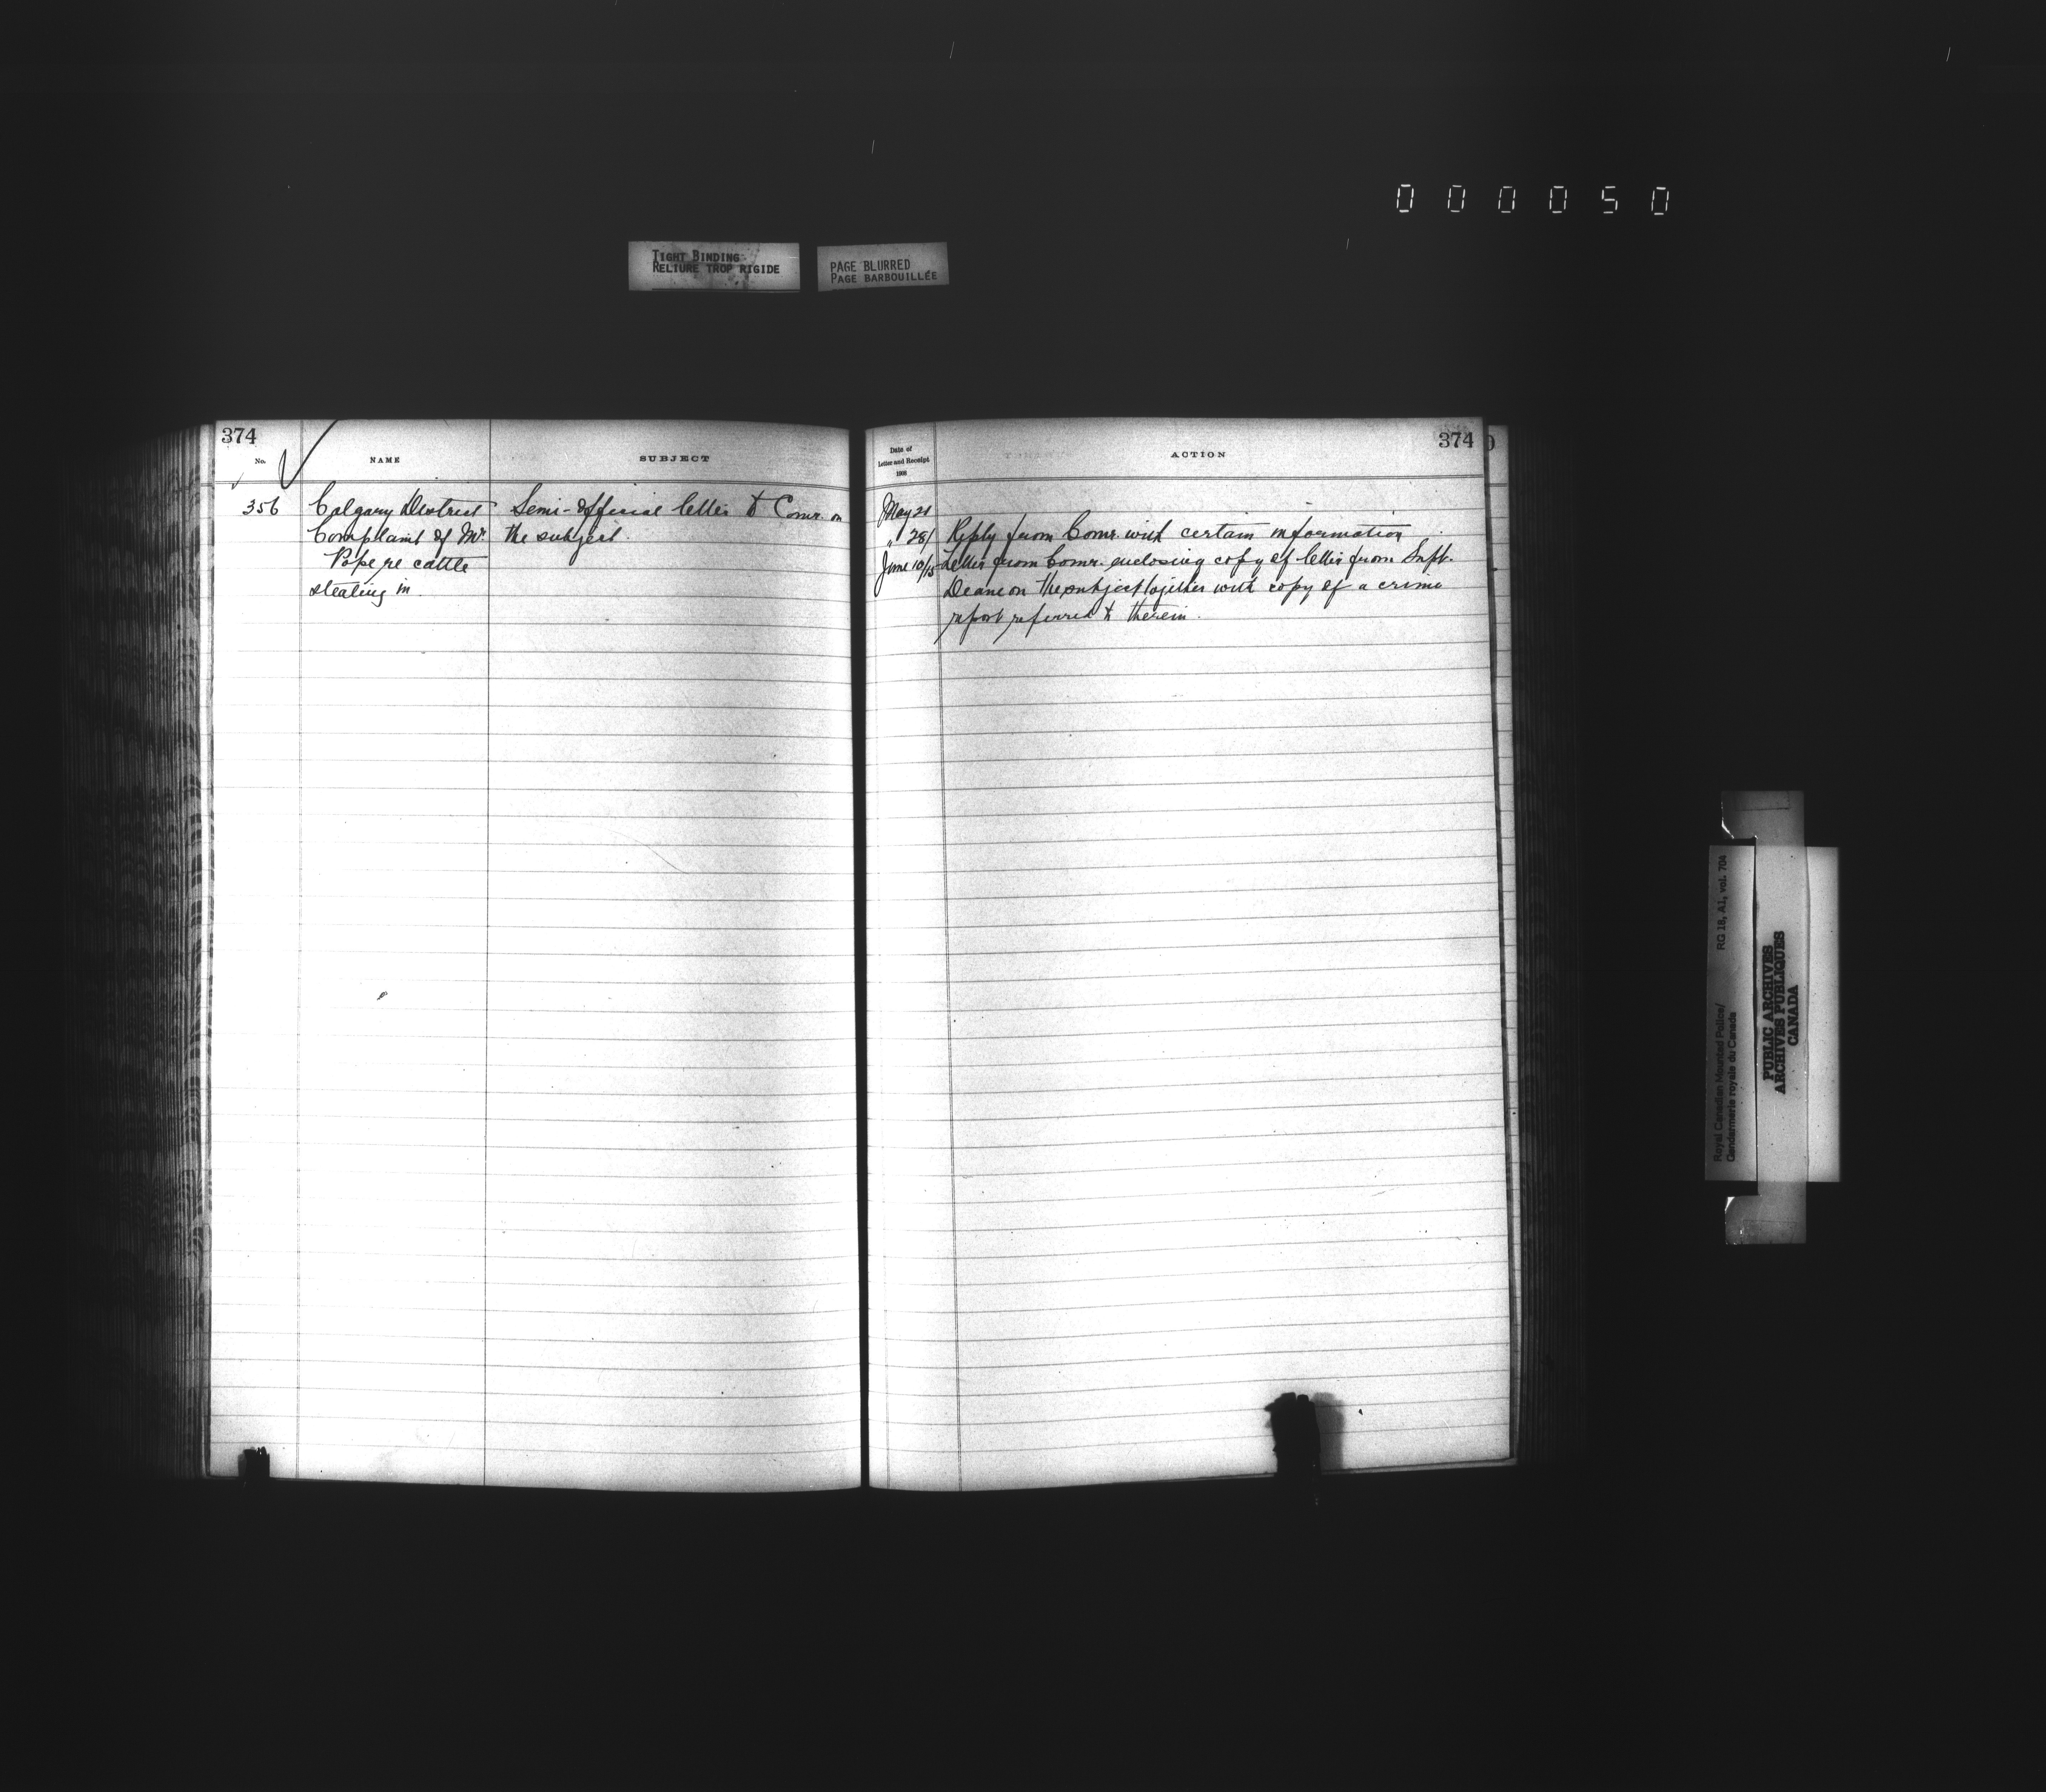 000050
TIGHT BINDING
RELIURE TROP RIGIDE
PAGE BLURRED
PAGE BARBOUILLÉE
374
No.
NAME
SUBJECT
356
Calgary District
Complaint of Mr.
Pope re cattle
stealing in.
Semi-official letter to Comr. on
the subject.
374
Date of
Letter and Receipt
1908
ACTION
May 21
" 28/ Reply from Comr. with certain information
June 10/15 Letter from Comr. enclosing copy of letter from Supt.
Deane on the subject together with copy of a crime
report referred to therein.
Royal Canadian Mounted Police/
Gendarmerie royale du Canada
RG 18, A1, vol. 704
PUBLIC ARCHIVES
ARCHIVES PUBLIQUES
CANADA